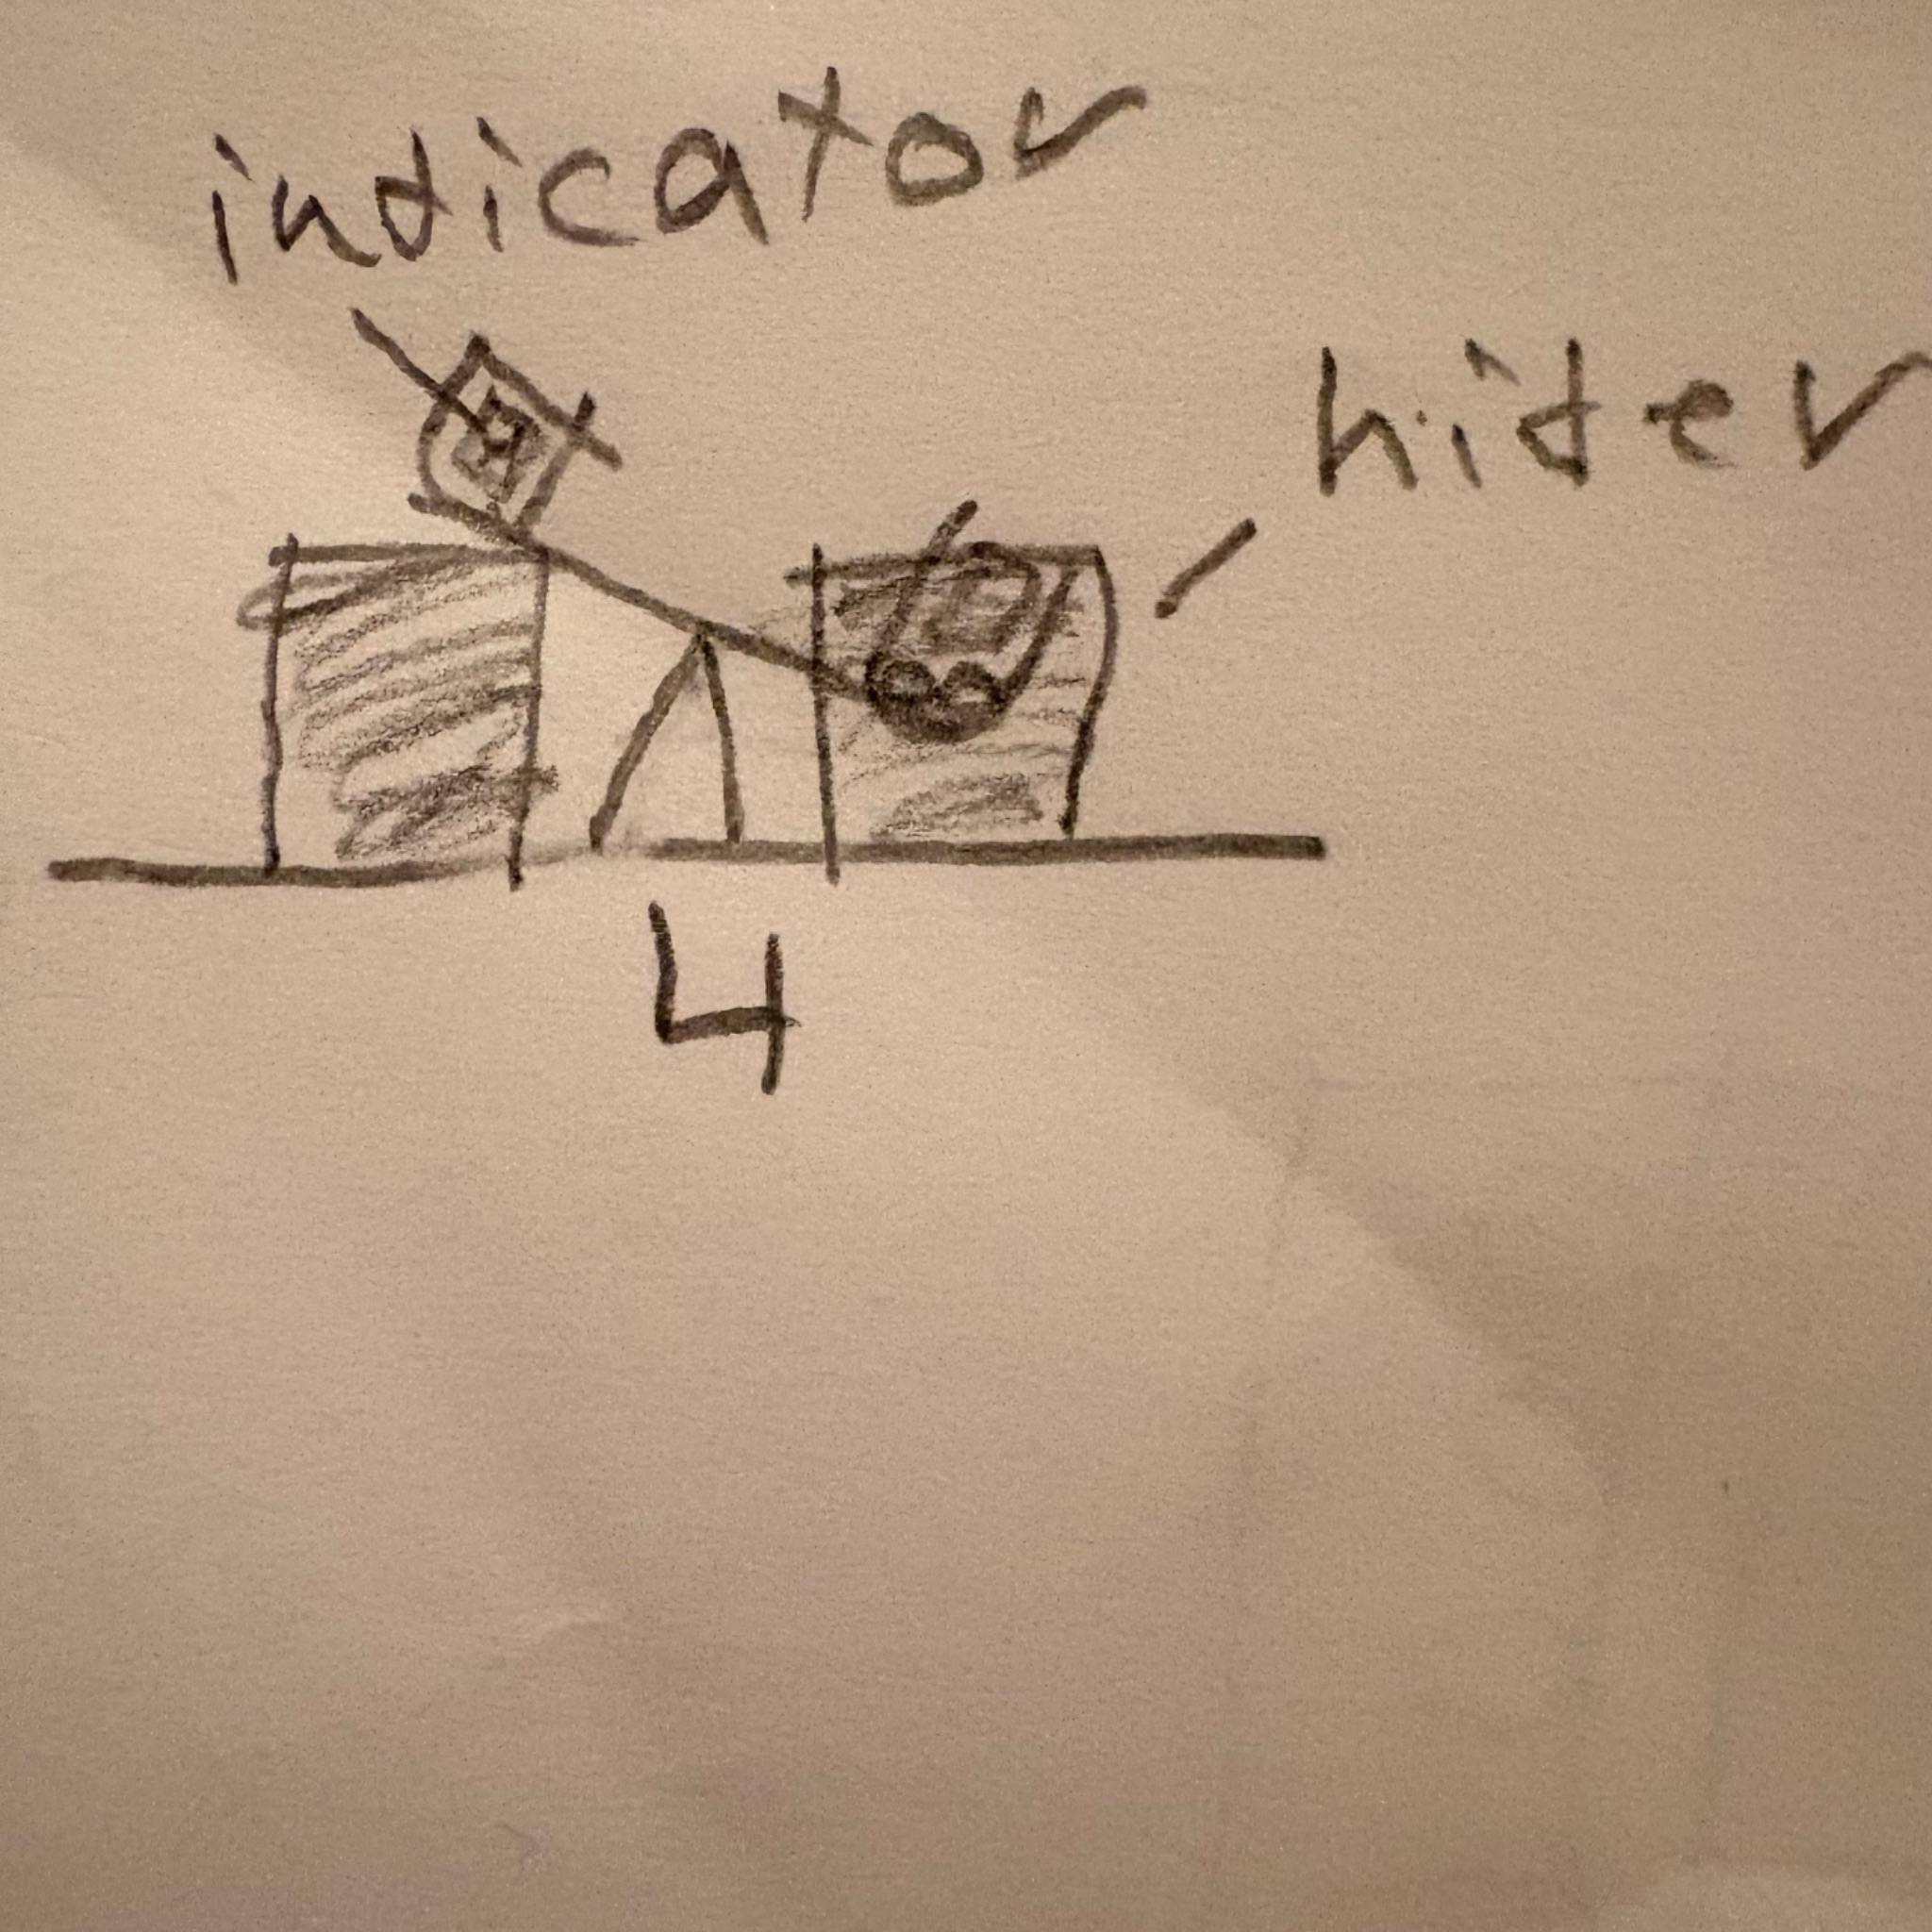 indicator
hider
4